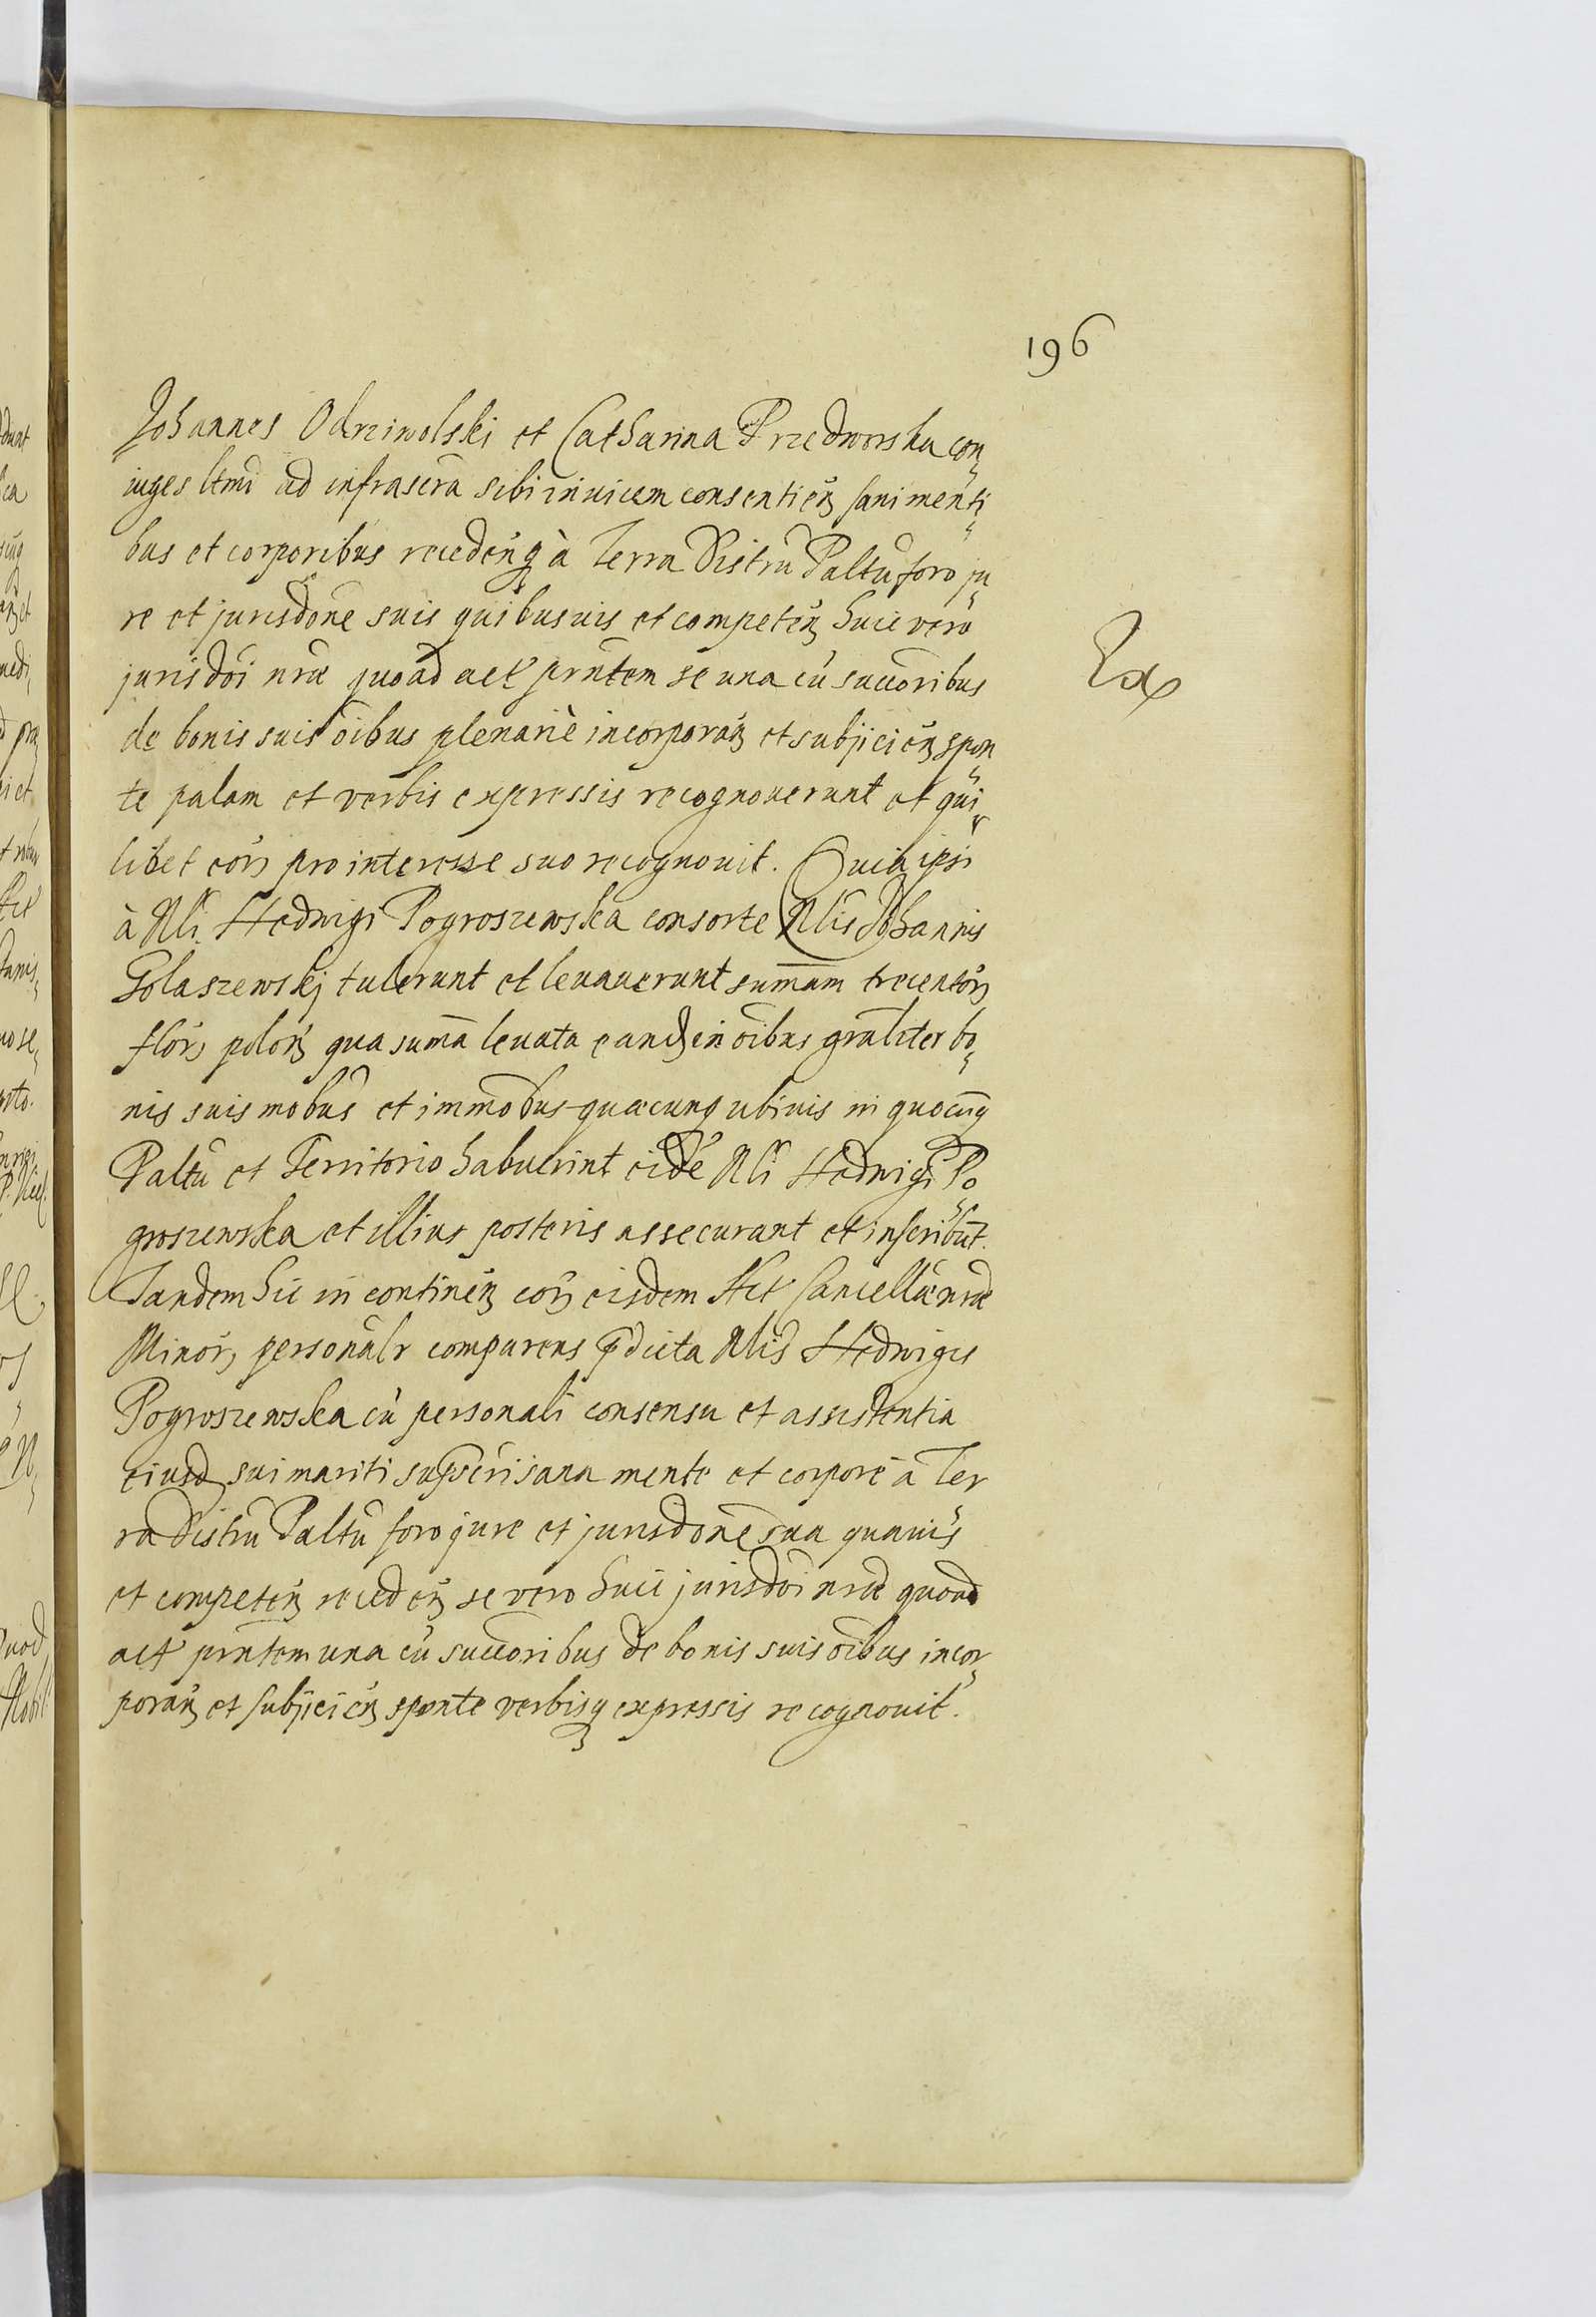 196
Johannes Odrziwolski et Catharina Przedworska con„
iuges ltmi ad infrascra sibi inuicem consentien sani menti„
bus et corporibus recedenq à Terra Distru Paltu foro ju„
re et jurisdone suis quibusuis et competen huic vero
jurisdoi nræ quoad act prntem se una cũ succoribus
de bonis suis oibus plenariè incorporan et subjicien spon„
te palam et verbis expressis recognouerunt et qui„
libet eor pro interesse suo recognouit. Quia ipsi
à Nli Hedwigi Pogroszewska consorte Nlis Johannis
Golaszewskj tulerunt et leuauerunt summam trecentor
flor polon qua suma leuata eand in oibus gnaliter bo„
nis suis mobus et immobus quæcunq ubiuis in quocuq
Paltu et Territorio habuerint eidé Nli Hedwigi Po„
groszewska et illius posteris assecurant et inscribut.
Tandem hic in continen cor eisdem Act Cancellæ nræ
Minor personalr comparens pdicta Nlis Hedwigis
Pogroszewska cũ personali consensu et assistentia
eiusd sui mariti supscri sana mente et corpore à Ter
ra Distru Paltu foro jure et jurisdone sua quauis
et competen receden se vero huic jurisdoi nræ quoad
act prntem una cũ succoribus de bonis suis oibus incor„
poran et subjicien sponte verbisq expressis recognouit.